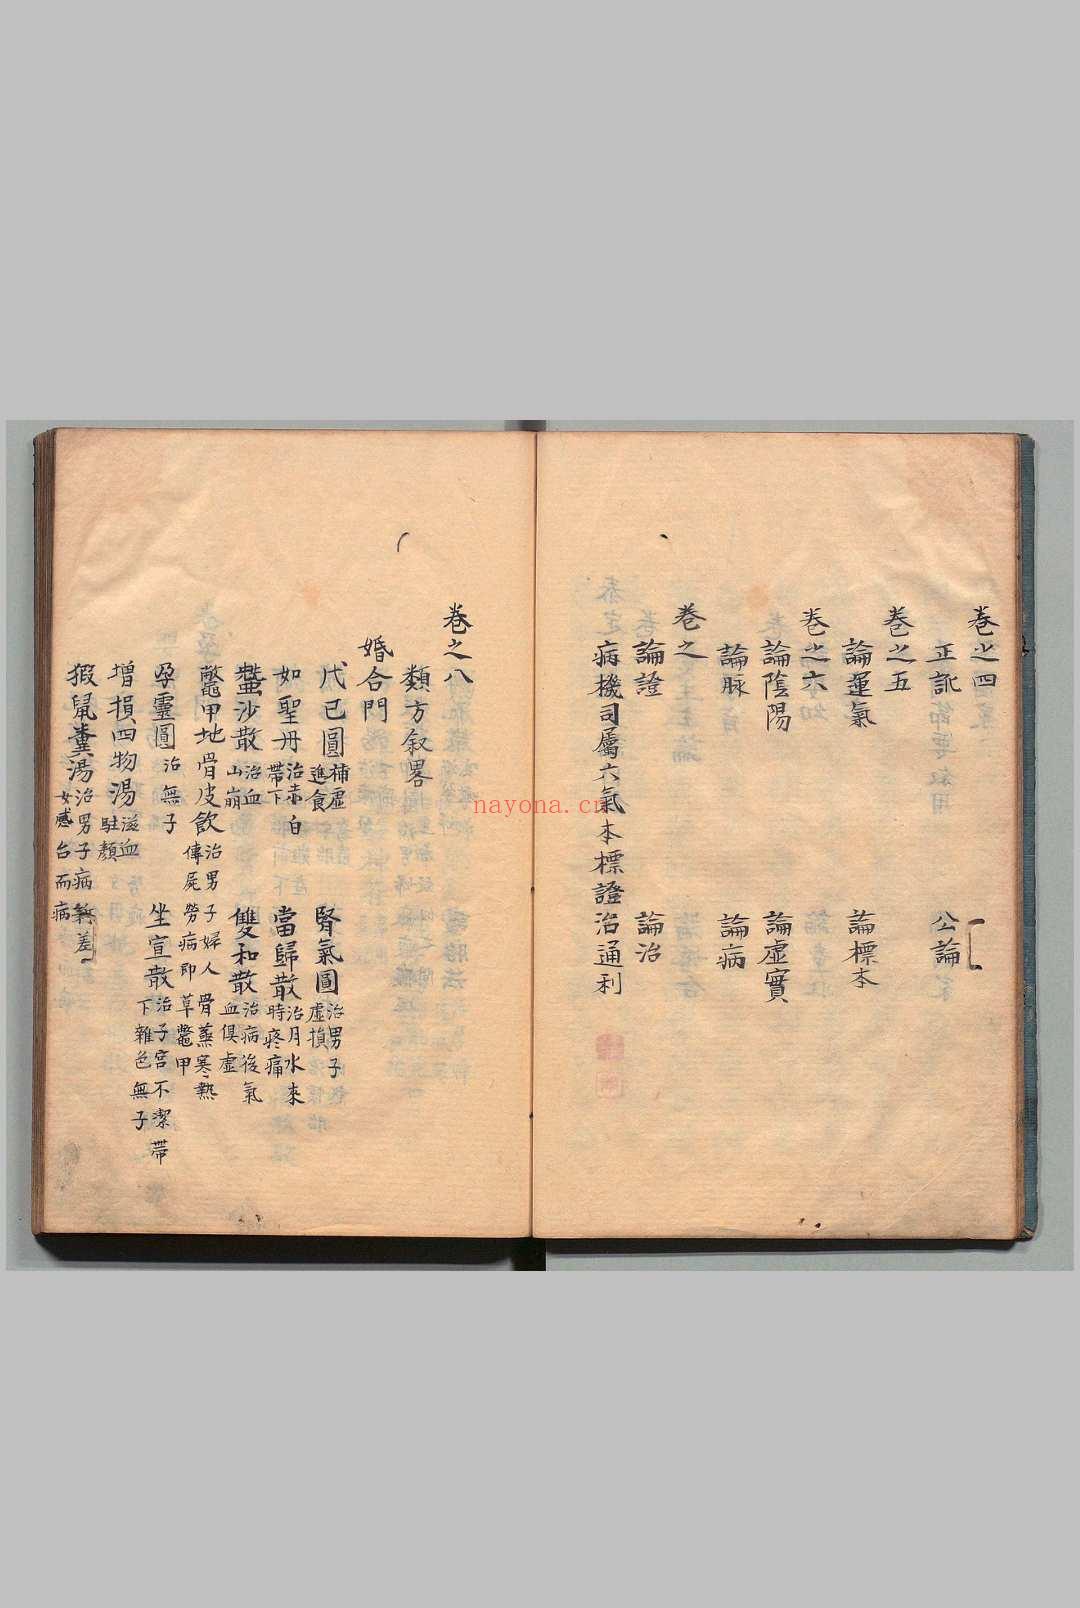 卷之四
正訛 公論
卷之五
論運氣 論標本
卷之六
論陰陽 論虛實
論脉 論病
卷之
論證 論治
病機司屬六氣本標證治通利
卷之八
類方敘畧
婚合門
代已圓補虛進食 腎氣圓治男子虛損
如聖丹治赤白帶下 當歸散治月水來時疼痛
蠶沙散治血山崩 雙和散治病後氣血俱虛
鼈甲地骨皮飲治男子婦人骨蒸寒熱傳屍勞病即草鼈甲
孕靈圓治無子 坐宣散治子宮不潔帶下雜色無子
增損四物湯滋血駐顏
猳鼠糞湯治男子病新差女感合而病
nayona.cn